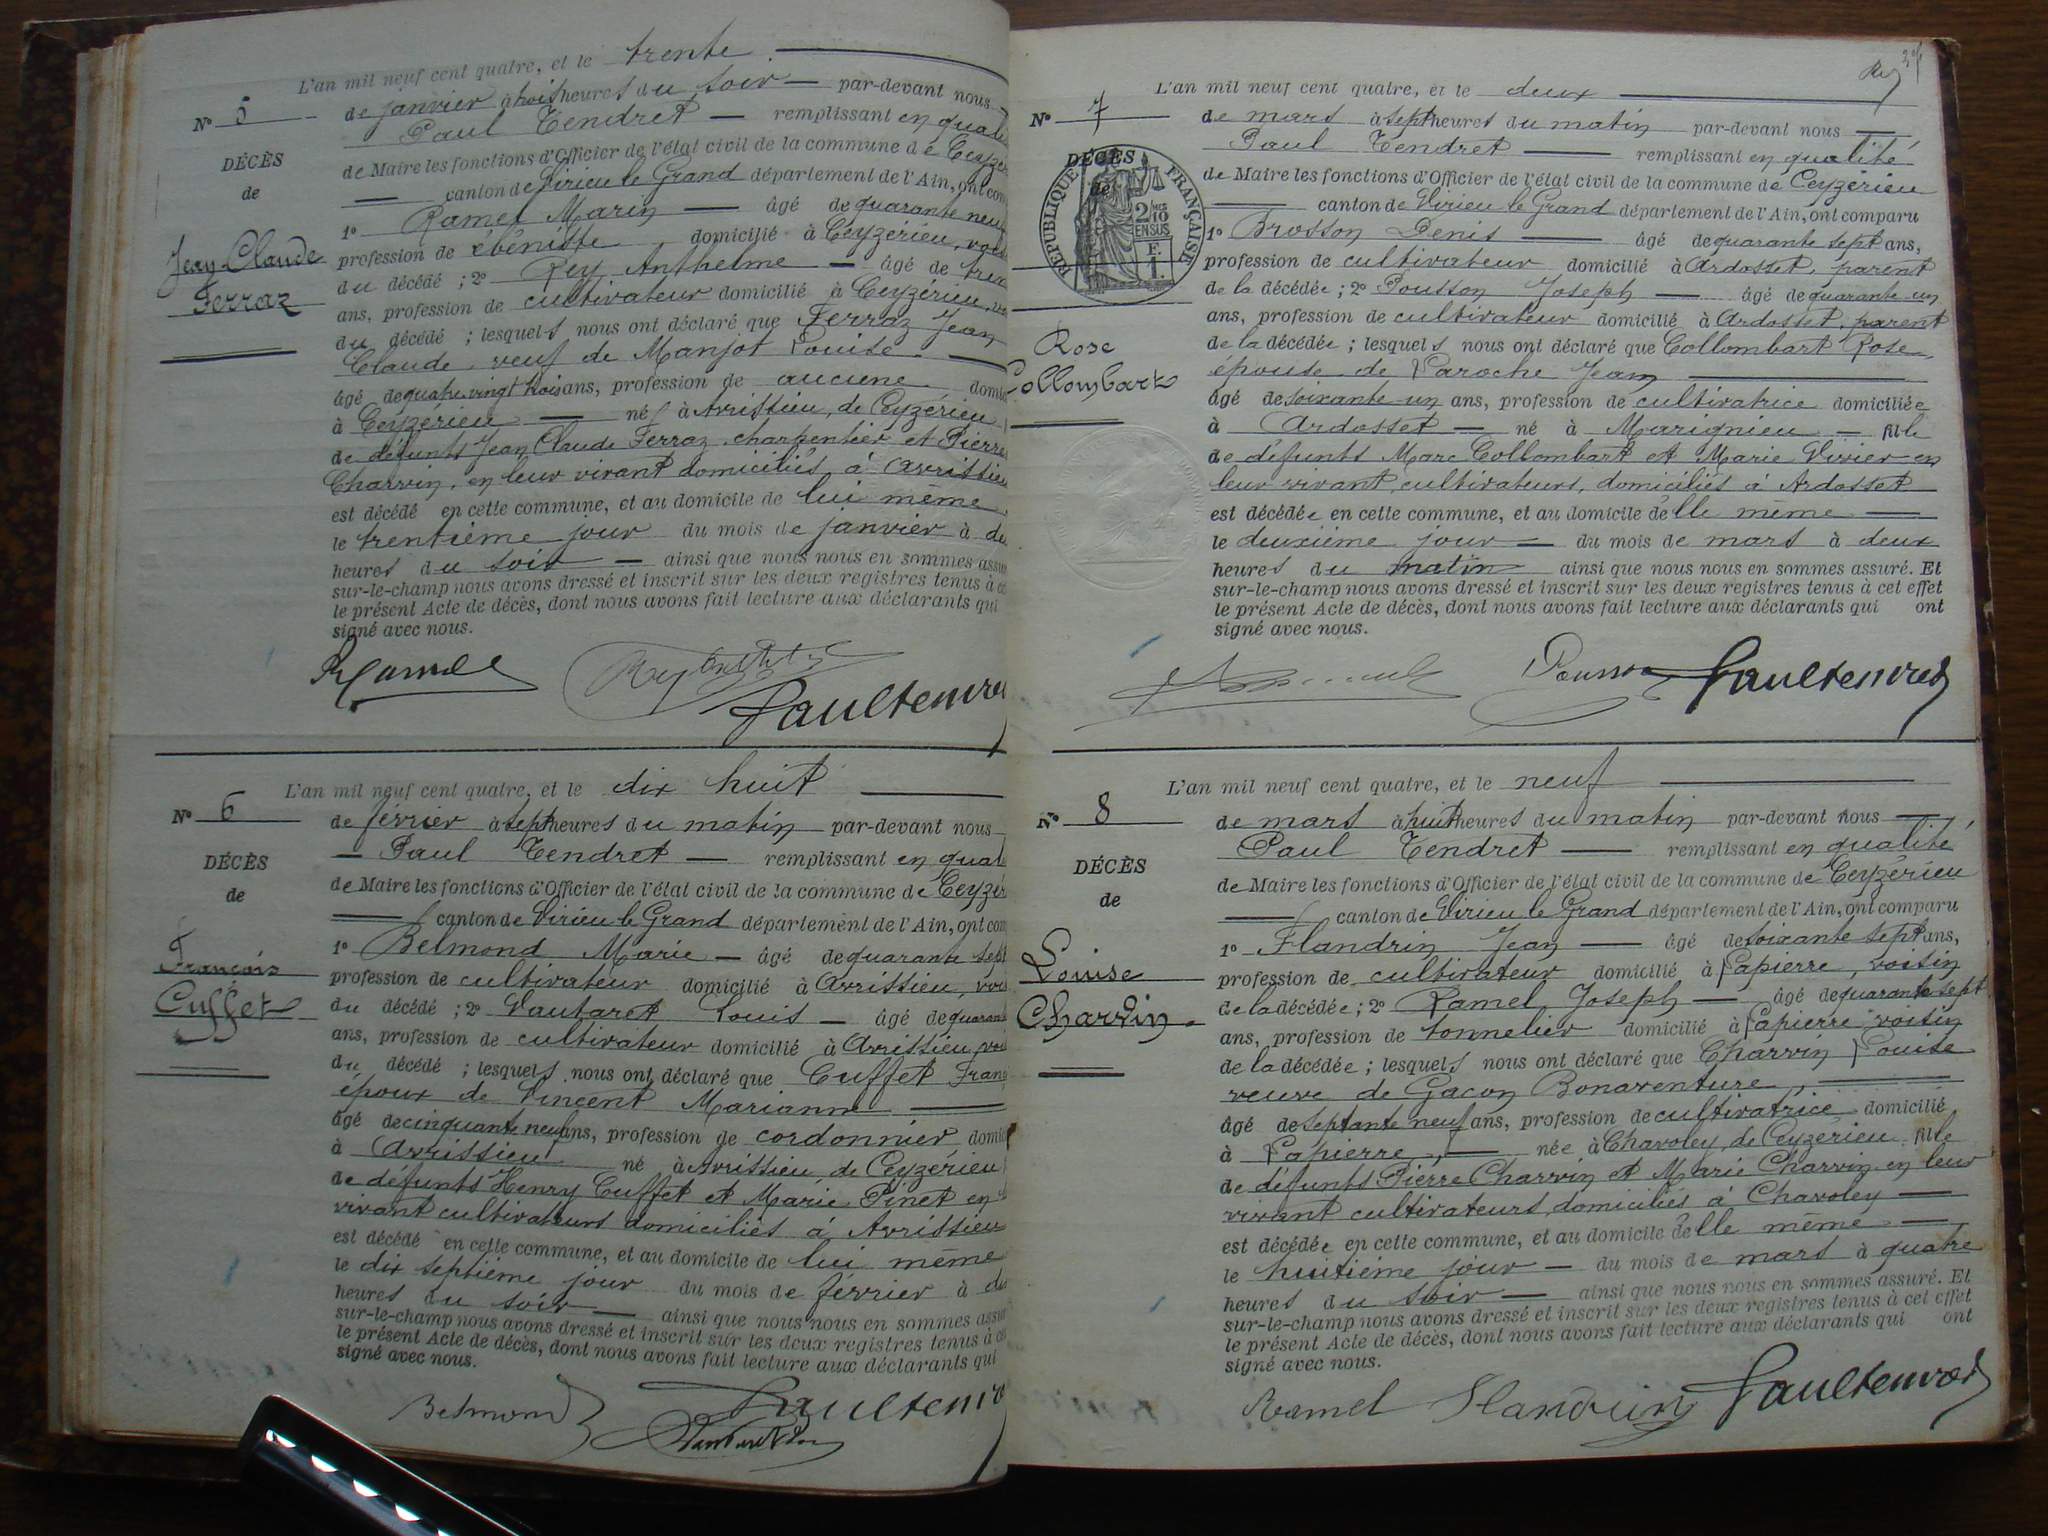 L'an mil neuf cent quatre, et le trente
N° 5
de janvier à trois heures du soir par-devant nous
Paul Tendret remplissant en quali
DÉCÈS
de Maire les fonctions d'Officier de l'état civil de la commune de Ceyzér
de
canton de Virieu le Grand département de l'Ain, ont com
1° Ramel Marin âgé de quarante neuf
Jean Claude
Ferraz
profession de ébéniste domicilié à Ceyzérieu, vois
du décédé ; 2° Rey Anthelme âgé de tren
ans, profession de cultivateur domicilié à Ceyzérieu, vo
du décédé ; lesquels nous ont déclaré que Ferraz Jean
Claude, veuf de Manjot Louise
âgé de quatre vingt trois ans, profession de aucune domi
à Ceyzérieu né à Avrissieu, de Ceyzérieu
de défunts Jean Claude Ferraz charpentier et Pierre
Charvin, en leur vivant domiciliés à Avrissieu
est décédé en cette commune, et au domicile de lui même
le trentième jour du mois de janvier à de
heures du soir ainsi que nous nous en sommes assu
sur-le-champ nous avons dressé et inscrit sur les deux registres tenus à ce
le présent Acte de décès, dont nous avons fait lecture aux déclarants qui
signé avec nous.
Ramel Rey Paultendre
L'an mil neuf cent quatre, et le dix huit
N° 6
de février à sept heures du matin par-devant nous
Paul Tendret remplissant en quali
DÉCÈS
de Maire les fonctions d'Officier de l'état civil de la commune de Ceyzér
de
canton de Virieu le Grand département de l'Ain, ont com
1° Belmond Marie âgé de quarante sept
François
Cuffet
profession de cultivateur domicilié à Avrissieu, voi
du décédé ; 2° Vautaret Louis âgé de quaran
ans, profession de cultivateur domicilié à Avrissieu, voi
du décédé ; lesquels nous ont déclaré que Cuffet Fran
époux de Vincent Marianne
âgé de cinquante neuf ans, profession de cordonnier domi
à Avrissieu né à Avrissieu, de Ceyzérieu
de défunts Henry Cuffet et Marie Pinet en
vivant cultivateurs domiciliés à Avrissieu
est décédé en cette commune, et au domicile de lui même
le dix septième jour du mois de février à de
heures du soir ainsi que nous nous en sommes assu
sur-le-champ nous avons dressé et inscrit sur les deux registres tenus à ce
le présent Acte de décès, dont nous avons fait lecture aux déclarants qui
signé avec nous.
Belmond Paultendre
L'an mil neuf cent quatre, et le deux
N° 7
de mars à sept heures du matin par-devant nous
Paul Tendret remplissant en qualité
DÉCÈS
de
RÉPUBLIQUE FRANÇAISE
2/10 EN SUS
F. 1.
de Maire les fonctions d'Officier de l'état civil de la commune de Ceyzérieu
canton de Virieu le Grand département de l'Ain, ont comparu
1° Brosson Denis âgé de quarante sept ans,
profession de cultivateur domicilié à Ardosset, parent
de la décédée ; 2° Pousson Joseph âgé de quarante un
ans, profession de cultivateur domicilié à Ardosset, parent
Rose
Collombart
de la décédée ; lesquels nous ont déclaré que Collombart Rose,
épouse de Laroche Jean
âgé de soixante un ans, profession de cultivatrice domiciliée
à Ardosset né à Marignieu fille
de défunts Marc Collombart et Marie Vivier en
leur vivant, cultivateurs, domiciliés à Ardosset
est décédée en cette commune, et au domicile d'elle même
le deuxième jour du mois de mars à deux
heures du matin ainsi que nous nous en sommes assuré. Et
sur-le-champ nous avons dressé et inscrit sur les deux registres tenus à cet effet
le présent Acte de décès, dont nous avons fait lecture aux déclarants qui ont
signé avec nous.
Pousson Paultendret
L'an mil neuf cent quatre, et le neuf
N° 8
de mars à huit heures du matin par-devant nous
Paul Tendret remplissant en qualité
DÉCÈS
de Maire les fonctions d'Officier de l'état civil de la commune de Ceyzérieu
de
canton de Virieu le Grand département de l'Ain, ont comparu
1° Flandrin Jean âgé de soixante sept ans,
Louise
Charvin
profession de cultivateur domicilié à Lapierre, voisin
de la décédée ; 2° Ramel Joseph âgé de quarante sept
ans, profession de tonnelier domicilié à Lapierre voisin
de la décédée ; lesquels nous ont déclaré que Charvin Louise
veuve de Gacon Bonaventure,
âgé de septante neuf ans, profession de cultivatrice domicilié
à Lapierre, née à Chavoley, de Ceyzérieu fille
de défunts Pierre Charvin et Marie Charvin en leur
vivant cultivateurs, domiciliés à Chavoley
est décédée en cette commune, et au domicile d'elle même
le huitième jour du mois de mars à quatre
heures du soir ainsi que nous nous en sommes assuré. Et
sur-le-champ nous avons dressé et inscrit sur les deux registres tenus à cet effet
le présent Acte de décès, dont nous avons fait lecture aux déclarants qui ont
signé avec nous.
Ramel Flandrin Paultendret